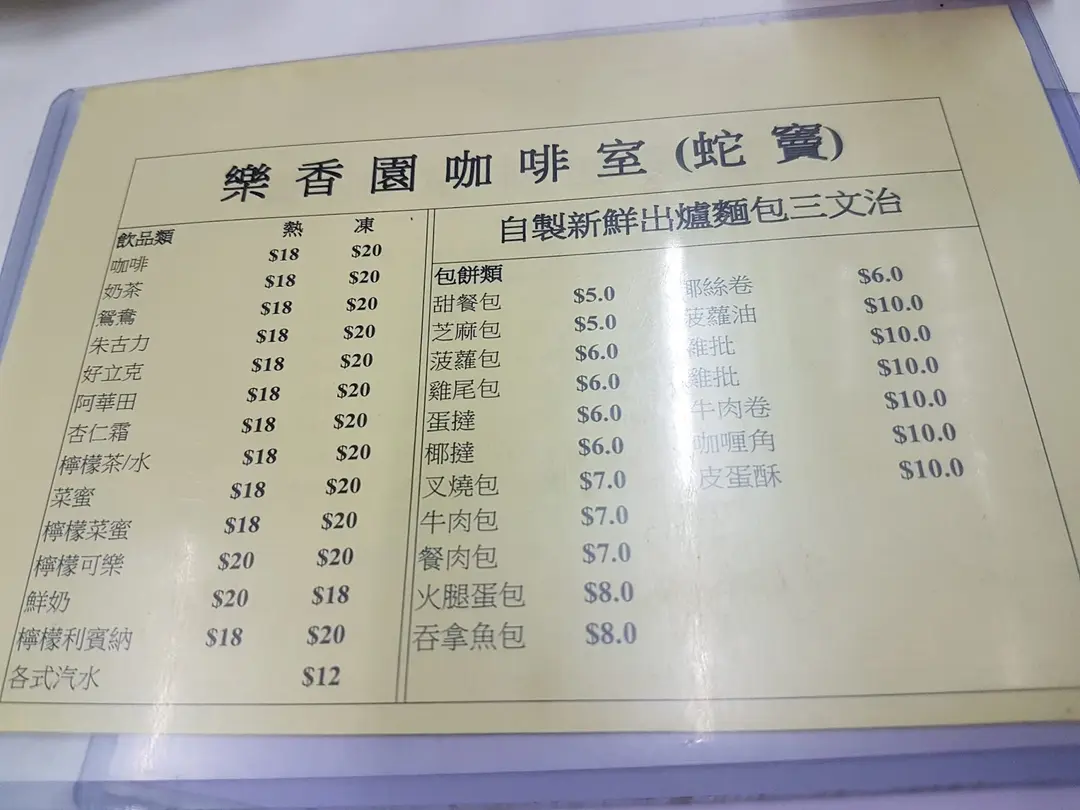 樂香園咖啡室(蛇竇)
飲品類 熱 凍
咖啡 $18 $20
奶茶 $18 $20
鴛鴦 $18 $20
朱古力 $18 $20
好立克 $18 $20
阿華田 $18 $20
杏仁霜 $18 $20
檸檬茶/水 $18 $20
菜蜜 $18 $20
檸檬菜蜜 $18 $20
檸檬可樂 $20 $20
鮮奶 $20 $18
檸檬利賓納 $18 $20
各式汽水 $12
自製新鮮出爐麵包三文治
包餅類
甜餐包 $5.0
芝麻包 $5.0
菠蘿包 $6.0
雞尾包 $6.0
蛋撻 $6.0
椰撻 $6.0
叉燒包 $7.0
牛肉包 $7.0
餐肉包 $7.0
火腿蛋包 $8.0
吞拿魚包 $8.0
椰絲卷 $6.0
菠蘿油 $10.0
雞批 $10.0
雞批 $10.0
牛肉卷 $10.0
咖喱角 $10.0
皮蛋酥 $10.0